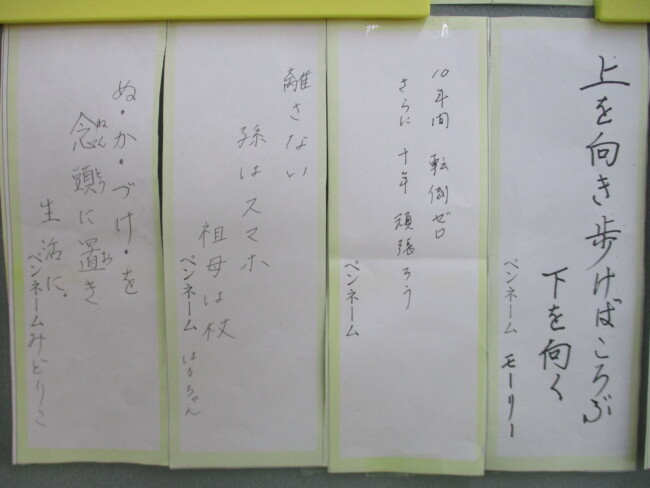 上を向き歩けばころぶ
下を向く
ペンネーム モーリー
10年間 転倒ゼロ
さらに 十年 頑張ろう
ペンネーム
離さない
孫はスマホ
祖母は杖
ペンネーム はるちゃん
ぬ・か・づけ・を
念頭に置き
ねんとう お
生活に。
ペンネームみどりこ